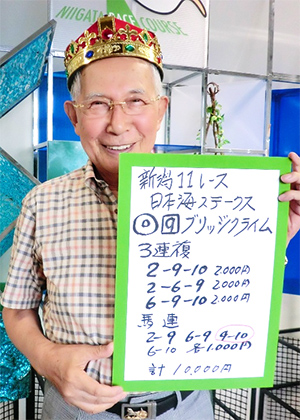 NIIGATA RACE COURSE
新潟11レース
日本海ステークス
◎⑨ブリッジクライム
3連複
2-9-10 2000円
2-6-9 2000円
6-9-10 2000円
馬連
2-9 6-9 9-10
6-10 各1.000円
計10,000円